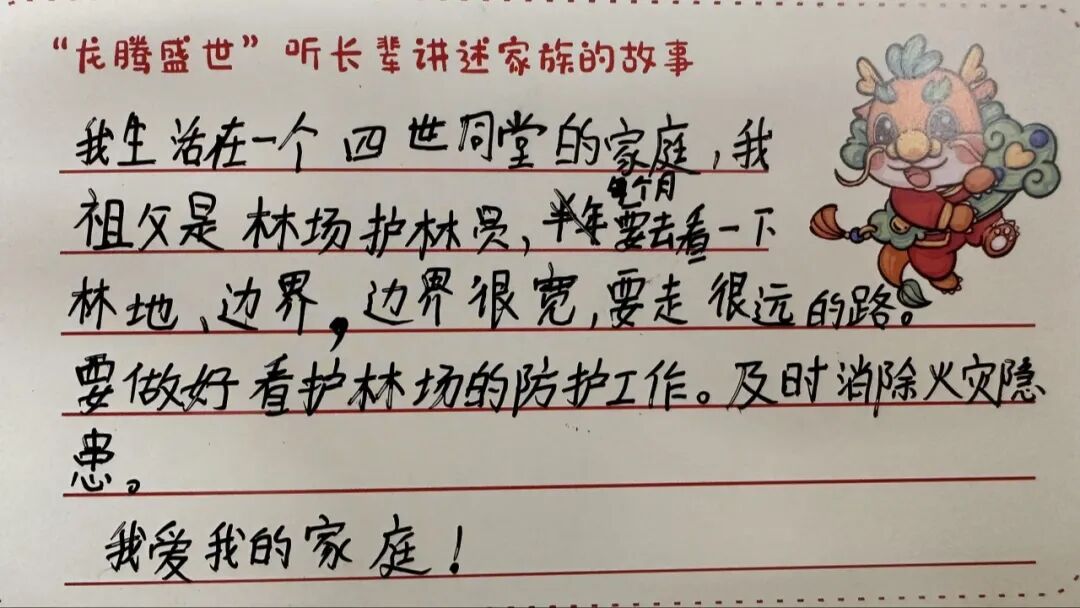 “龙腾盛世”听长辈讲述家族的故事
我生活在一个四世同堂的家庭，我
每个月
祖父是林场护林员，半年要去看一下
林地、边界，边界很宽，要走很远的路。
要做好看护林场的防护工作。及时消除火灾隐
患。
我爱我的家庭！